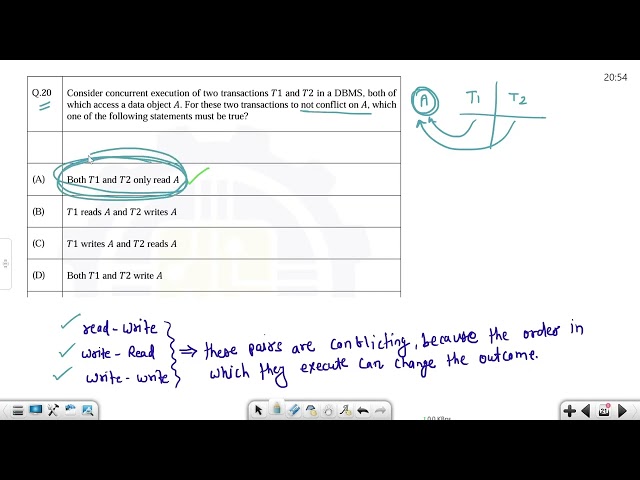 20:54
Q.20 Consider concurrent execution of two transactions T1 and T2 in a DBMS, both of
which access a data object A. For these two transactions to not conflict on A, which
one of the following statements must be true?
A T1 T2
(A) Both T1 and T2 only read A
(B) T1 reads A and T2 writes A
(C) T1 writes A and T2 reads A
(D) Both T1 and T2 write A
read-write
write-Read
write-write
⇒ these pairs are conflicting, because the order in
which they execute can change the outcome.
21